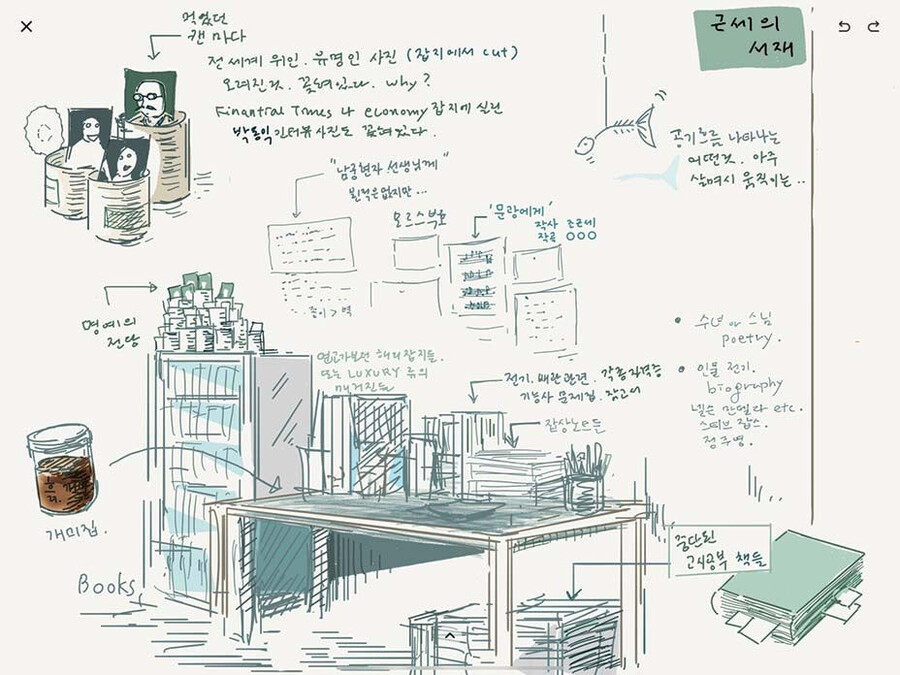 근세의
서재
먹었던
캔 마다
전 세계 위인. 유명인 사진 (잡지에서 cut)
오려진것. 꽂혀있다. why?
Finantial Times 나 economy 잡지에 실린
박동익 인터뷰 사진도 꽂혀있다.
공기흐름 나타나는
어떤것. 아주
살며시 움직이는..
"남궁현자 선생님께"
본적은 없지만...
모르스부호
'문광에게'
작사 조근세
작곡 OOO
종이 >
명예의
전당
연교가 보던 해외잡지들.
또는 LUXURY 류의
매거진들
전기. 배관 관련. 각종 자격증
기능사 문제집. 참고서
잡상노트들
수녀 or 스님
poetry.
인물 전기.
biography
넬슨 만델라 etc.
스티브 잡스.
정주영.
개미집.
Books
중단된
고시공부 책들